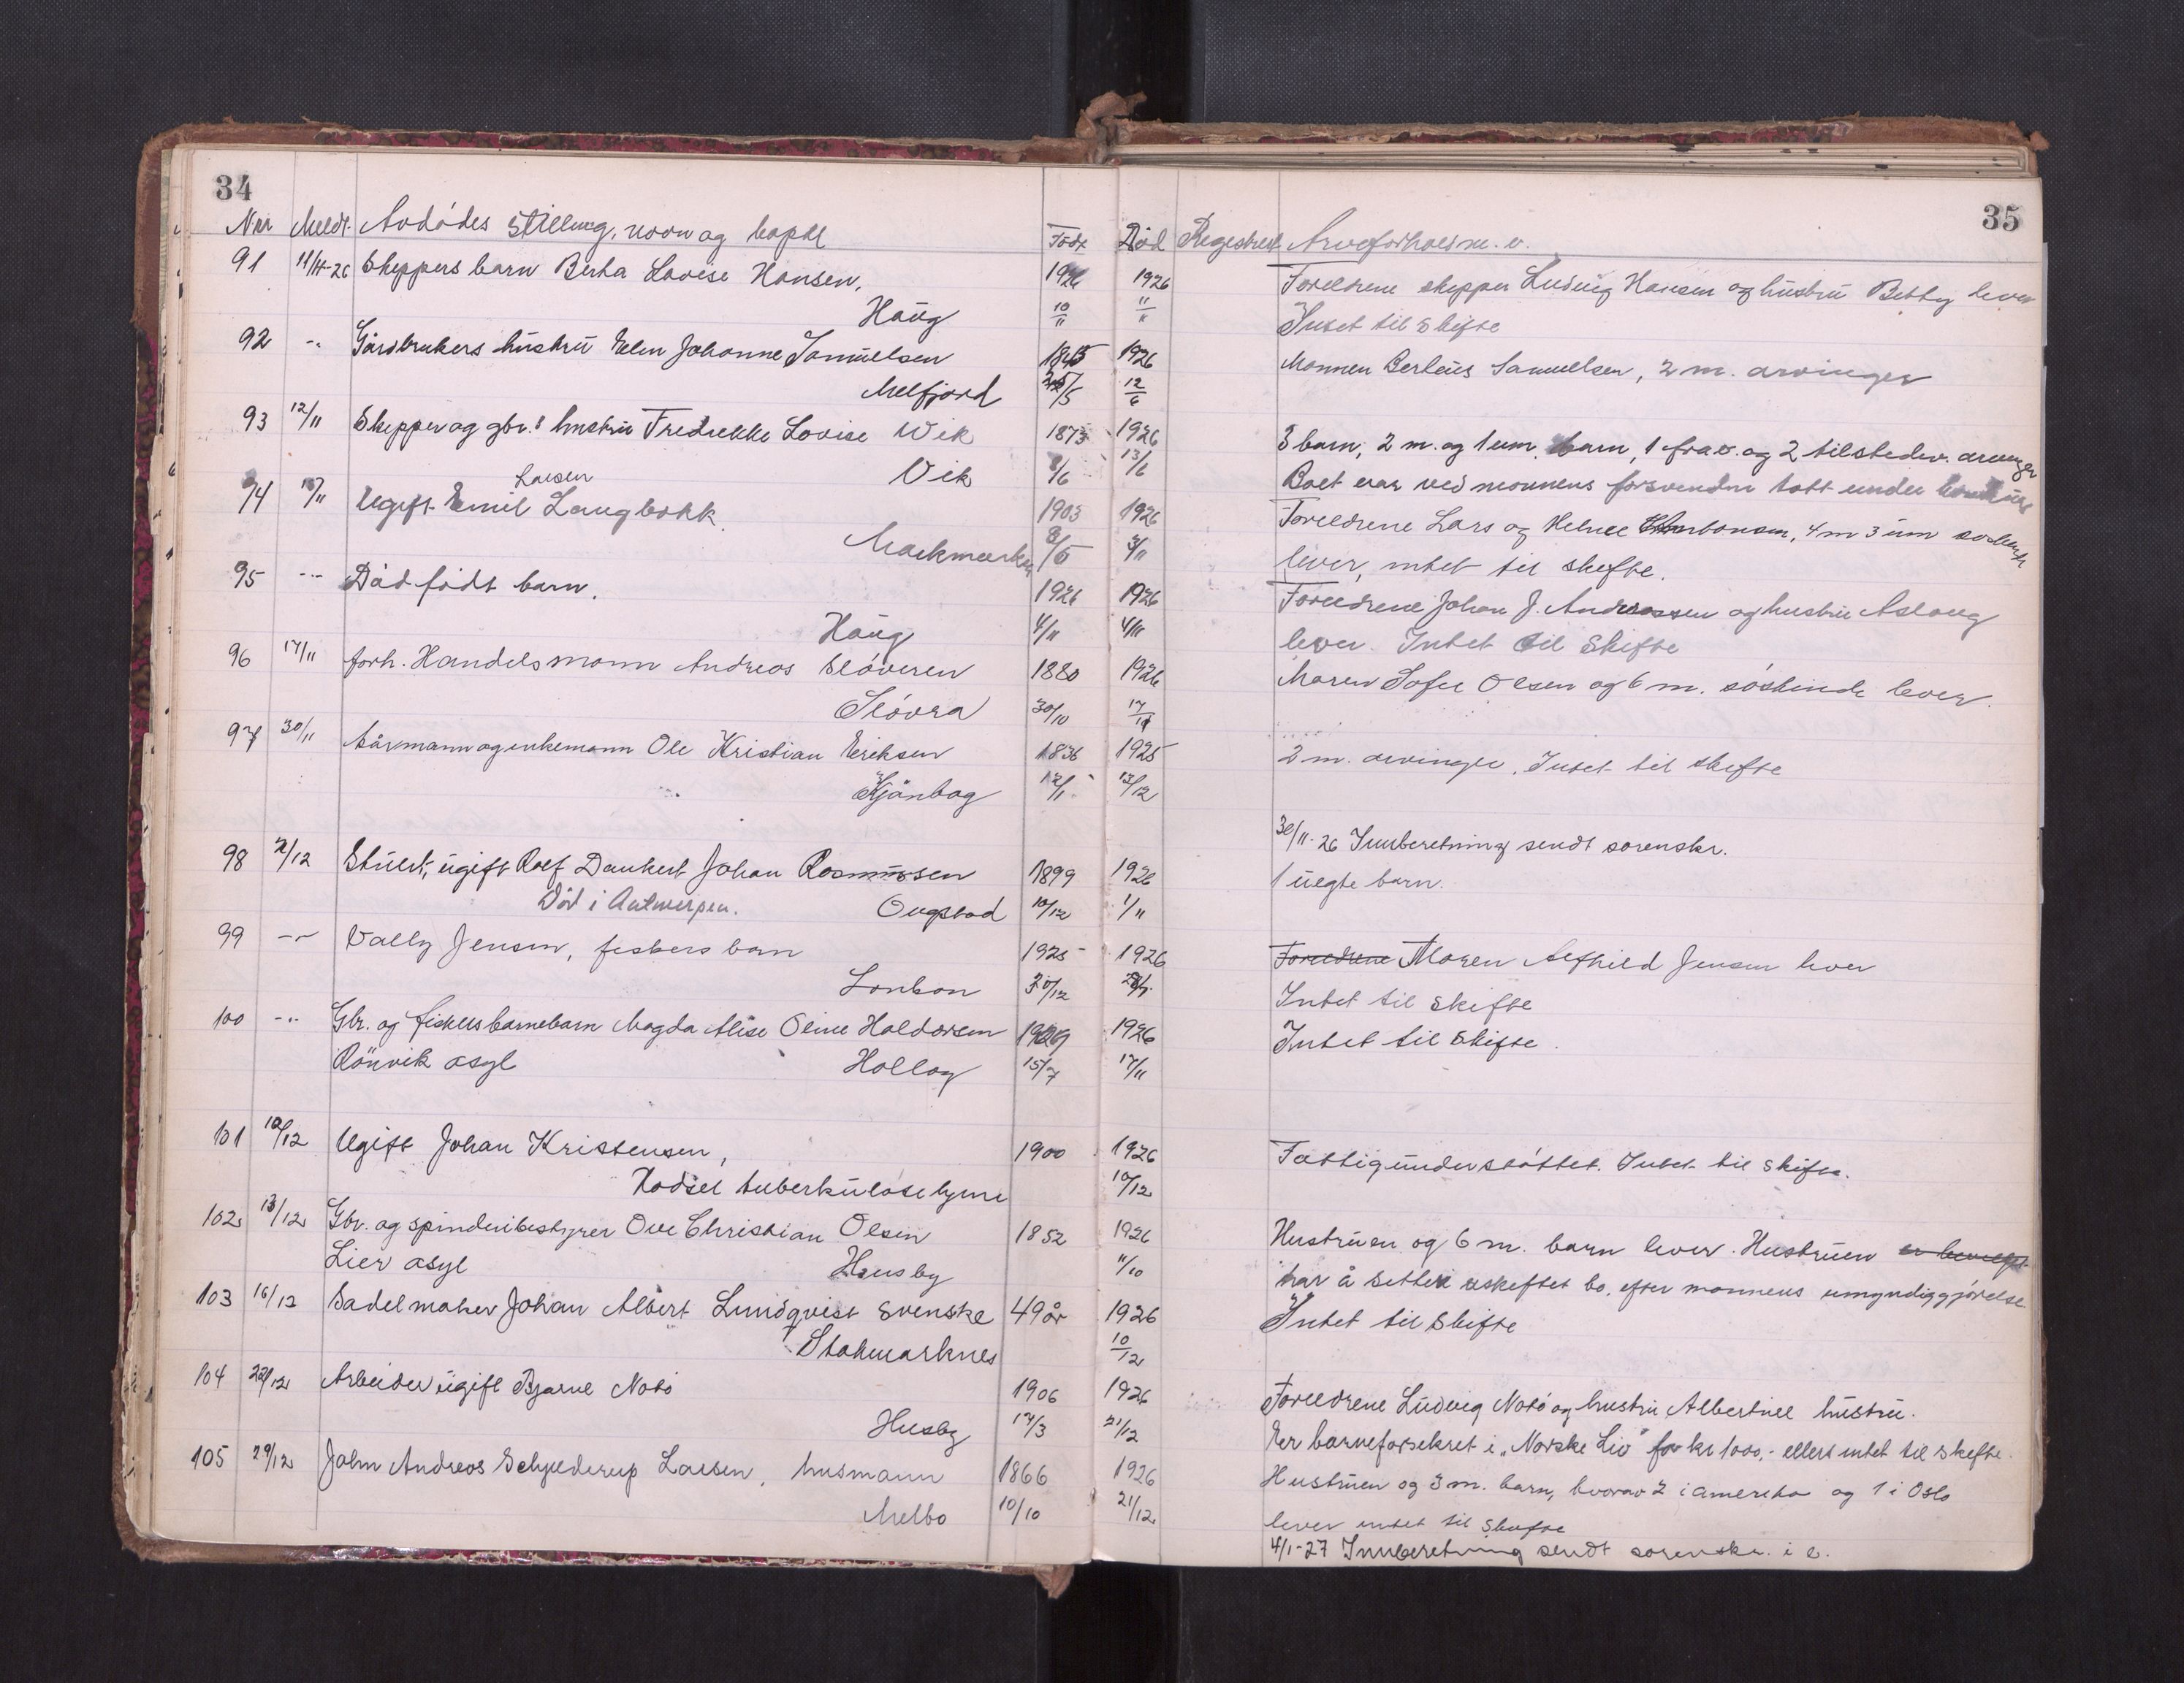 34
35
Nr Meldt. Avdødes stilling, navn og bopel Født Død Registrert Arveforhold m. v.
91 11/11-26 Skippers barn Berta Lovise Hansen, 1926 1926 Foreldrene skipper Ludvig Hansen og hustru Betty lever
Haug 10/11 11/11 Intet til skifte
92 -"- Gårdbrukers hustru Elen Johanne Samuelsen 1845 1926 Mannen Berteus Samuelsen, 2 m. arvinger
Melfjord 25/5 12/6
93 12/11 Skipper og gbr.s hustru Fredrekke Lovise Wik 1873 1926 3 barn, 2 m. og 1 um. barn, 1 frav. og 2 tilstedev. arvinger
Vik 8/6 13/6 Boet var ved mannens forsvinden tatt under
94 15/11 Ugift Emil Larsen Langbakk 1903 1926 Foreldrene Lars og Helene, 4 m 3 um søskende
Markmarken 8/5 3/11 lever, intet til skifte.
95 -"- Dødfødt barn. 1926 1926 Foreldrene Johan J. Andreassen og hustru Aslaug
Haug 4/11 4/11 lever. Intet til skifte
96 17/11 forh. Handelsmann Andreas Sløveren 1880 1926 Maren Sofie Olsen og 6 m. søskende lever.
Sløvra 30/10 17/11
97 30/11 Kårmann og enkemann Ole Kristian Eriksen 1836 1925 2 m. arvinger. Intet til skifte
Kjønbog 12/1 13/12
30/11-26 Innberetning sendt sorenskr.
98 2/12 Stuert, ugift Rolf Dankert Johan Rasmussen 1899 1926 1 uegte barn.
Død i Antwerpen. Ongstad 10/12 1/11
99 -"- Vally Jensen, fiskers barn 1925 1926 Foreldrene Moren Alfhild Jensen lever
Lonkan 30/12 Intet til skifte
100 -"- Gbr. og fiskers barnebarn Magda Alise Oline Haldorsen 1909 1926 Intet til skifte.
Rønvik asyl Hollog 15/7 17/11
101 10/12 Ugift Johan Kristensen, 1900 1926 Fattigunderstøttet. Intet til skifte.
Hadsel tuberkulosehjem 10/12
102 13/12 Gbr. og spinderibestyrer Ove Christian Olsen 1852 1926 Hustruen og 6 m. barn lever. Hustruen er bevilget
Lier asyl Husby 11/10 har å sitter uskiftet bo. efter mannens umyndiggjørelse
103 16/12 Sadelmaker Johan Albert Lundqvist svenske 49 år 1926 Intet til skifte
Stokmarknes 10/12
104 22/12 Arbeider ugift Bjarne Notø 1906 1926 Foreldrene Ludvig Notø og hustru Albertine hustru.
Husby 14/3 21/12 Er barneforsikret i „Norske Liv" for kr 1000,- ellers intet til skifte.
105 29/12 John Andreas Schjelderup Larsen, husmann 1866 1926 Hustruen og 3 m. barn, hvorav 2 i amerika og 1 i Oslo
Melbo 10/10 21/12 lever intet til skifte
4/1-27 Innberetning sendt sorenskr. i e.